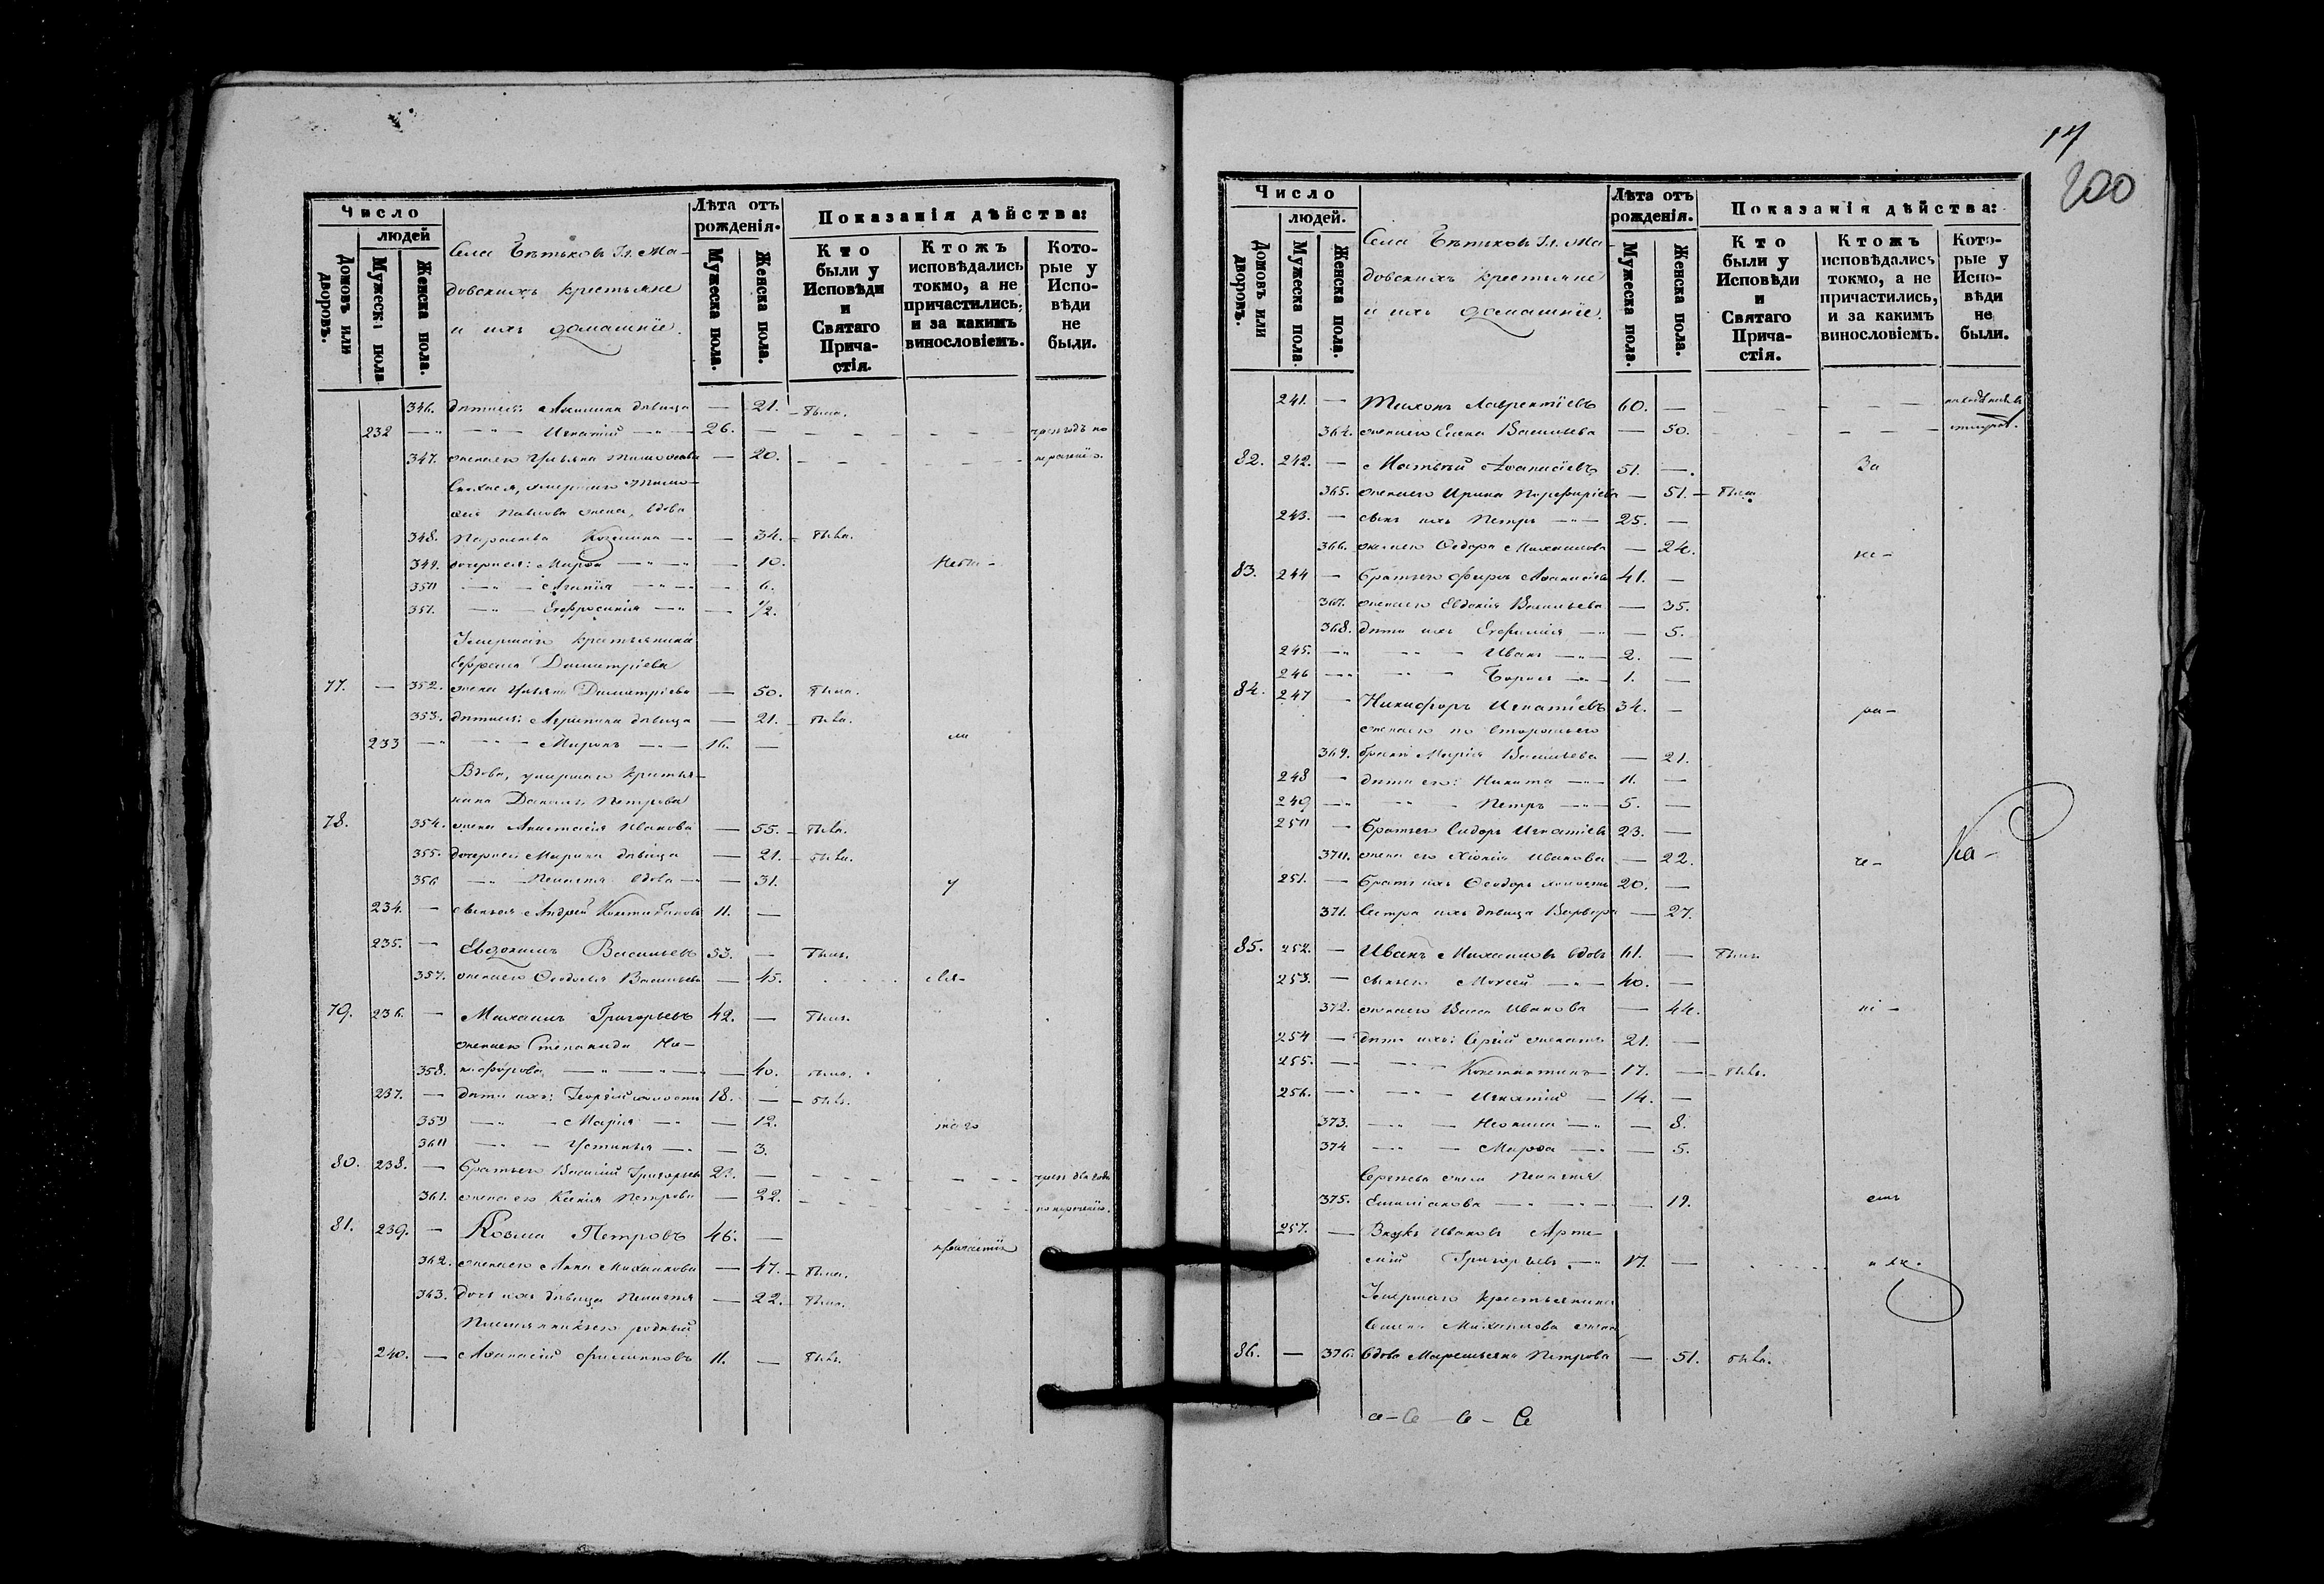 Число
людей
Домовъ или дворовъ.
Мужеска пола
Женска пола.
Села Бѣтьковъ Гл. Ма-
довскихъ крестьяне
и ихъ домашніе.
Лѣта отъ рожденія.
Мужеска пола.
Женска пола.
Показанія дѣйства:
Кто были у Исповѣди и Святаго Прича-стія.
Ктожъ исповѣдались токмо, а не причастились, и за какимъ винословіемъ.
Кото-рые у Испо-вѣди не были.
346. дѣти ея: Акилина дѣвица — 21. — была.
232 — " — Игнатій — " — 26. —
347. жена его Ульяна — 20.
вдова
348. Параскева Козмина — " — 34. — была.
349. дочери ея: Марѳа — " — 10. Небы-
350 — " — Агапія — " — 6.
351. — " — Евфросинія — " — 1/2.
Умершаго крестьянина
Ефрема Димитріева
77. — 352. жена Ульяна Димитріева — 50. была.
353. дѣти ея: Агрипина дѣвица — 21. — была.
233 — " — Миронъ — " — 16. — ли
Вдова, умершаго крестья-
нина Даніила Петрова
78. 354. жена Анастасія Иванова — 55. — была.
355. дочери ея Марина дѣвица — 21. — была.
356 — " — Пелагія вдова — 31. у
234. — сынъ ея Андрей 11. —
235. — Евдокимъ Васильевъ 53. — былъ.
357. жена его Ѳеодосія Васильева — 45. свя-
79. 236. — Михаилъ Григорьевъ 42. — былъ.
жена его Степанида Ни-
358. кифорова — " — " — 40. была.
237. — дѣти ихъ: Георгій холостъ 18. — былъ.
359 — " — Марія — " — 12. таго
360 — " — Устинья — " — 3.
80. 238. — братъ его Василій Григорьевъ 23. — чрезъ два года
361. жена его Ксенія Петрова — 22. по нерачению.
81. 239. — Козма Петровъ 46. — причастія
362. жена его Анна Михайлова — 47. — была.
363. дочь ихъ дѣвица Пелагія — 22. — была.
Племянникъ его родный
240. — Аѳанасій Филиповъ 11. — былъ.
17
200
Число
людей.
Домовъ или дворовъ.
Мужеска пола
Женска пола.
Села Бѣтьковъ Гл. Ма-
довскихъ крестьяне
и ихъ домашніе.
Лѣта отъ рожденія.
Мужеска пола.
Женска пола.
Показанія дѣйства:
Кто были у Исповѣди и Святаго Прича-стія.
Ктожъ исповѣдались токмо, а не причастились, и за какимъ винословіемъ.
Кото-рые у Испо-вѣди не были.
241. — Тихонъ Лаврентіевъ 60. —
364. жена его Елена Васильева — 50.
82. 242. — Матѳей Аѳанасіевъ 51. — За
365. жена его Ирина Порфиріева — 51. — была
243. — сынъ ихъ Петръ — " — 25. —
366. жена его Ѳедора Михаилова — 24. не-
83. 244 — братъ его Фирсъ Аѳанасіевъ 41. —
367. жена его Евдокія Васильева — 35.
368. дѣти ихъ Евфимія — " — 5.
245. — " — Иванъ — " — 2. —
246 — " — Борисъ — " — 1. —
84. 247 — Никифоръ Игнатіевъ 34. — ра-
жена его по второму его
369. браку Марія Васильева — 21.
248 — дѣти его: Никита — " — 11. —
249 — " — Петръ — " — 5. —
250 — братъ его Сидоръ Игнатіевъ 23. —
370. жена его Хіонія Иванова — 22. че-
251. — братъ ихъ Ѳеодоръ холостъ 20. —
371. Сестра ихъ дѣвица Варвара — 27.
85. 252. — Иванъ Михаиловъ вдовъ 61. — былъ.
253. — сынъ его Моисей — " — 40. —
372. жена его Васса Иванова — 44. ні-
254 — дѣти ихъ: Сергій женатъ 21. —
255. — " — Константинъ — 17. — былъ.
256. — " — Игнатій — 14. —
373. — " — Неонила — " — 8.
374 — " — Марѳа — " — 5.
Сергѣева жена Пелагія
375. Емиліанова — " — " — 19. емъ
257. — Внукъ Ивановъ Арте-
мій Григорьевъ — " 17. —
Умершаго крестьянина
Семена Михаилова жена
86. — 376. вдова Маремьяна Петрова — 51. была.